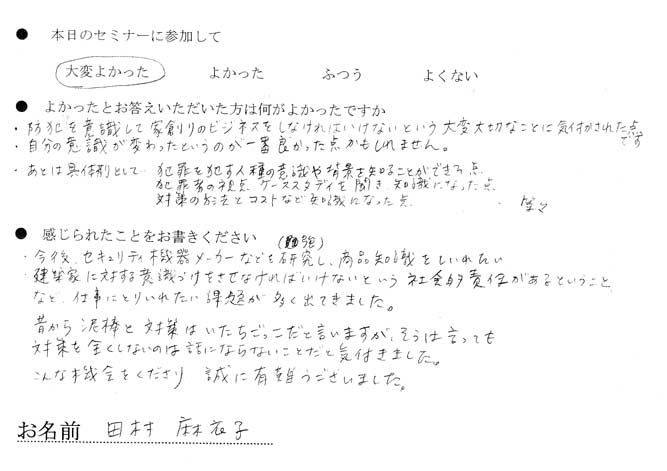 ● 本日のセミナーに参加して
大変よかった よかった ふつう よくない
● よかったとお答えいただいた方は何がよかったですか
・防犯を意識して家創りのビジネスをしなければいけないという大変大切なことに気付かされた点です
・自分の意識が変わったというのが一番良かった点かもしれません。
・あとは具体例として 犯罪を犯す人種の意識や背景を知ることができる点
犯罪者の視点、ケーススタディを聞き、知識になった点
対策の方法とコストなど知識になった点 等々
● 感じられたことをお書きください (勉強)
・今後、セキュリティ機器メーカーなどを研究し、商品知識をしいれたい
・建築家に対する意識づけをさせなければいけないという社会的責任があるということ
など、仕事にとりいれたい課題が多く出てきました。
昔から泥棒と対策はいたちごっこだと言いますが、そうは言っても
対策を全くしないのは話にならないことだと気付きました。
こんな機会をくださり 誠に有難うございました。
お名前 田村 麻衣子